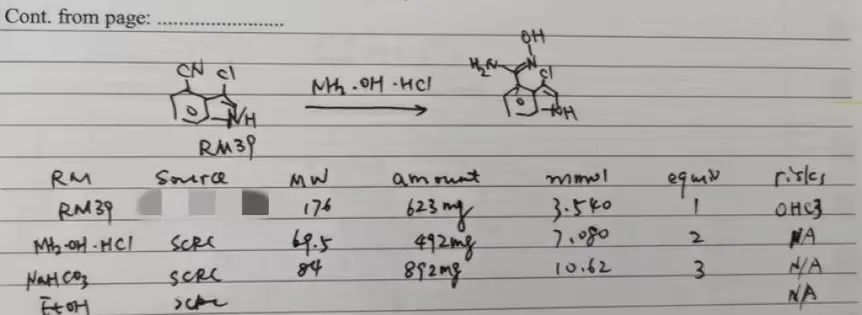 Cont. from page: ........................
OH
CN Cl H2N N Cl
NH2.OH.HCl
NH NH
RM39
RM Source MW amount mmol equiv risks
RM39 176 623 mg 3.540 1 OHC3
NH2.OH.HCl SCRC 69.5 492mg 7.080 2 N/A
NaHCO3 SCRC 84 892mg 10.62 3 N/A
EtOH SCRC N/A